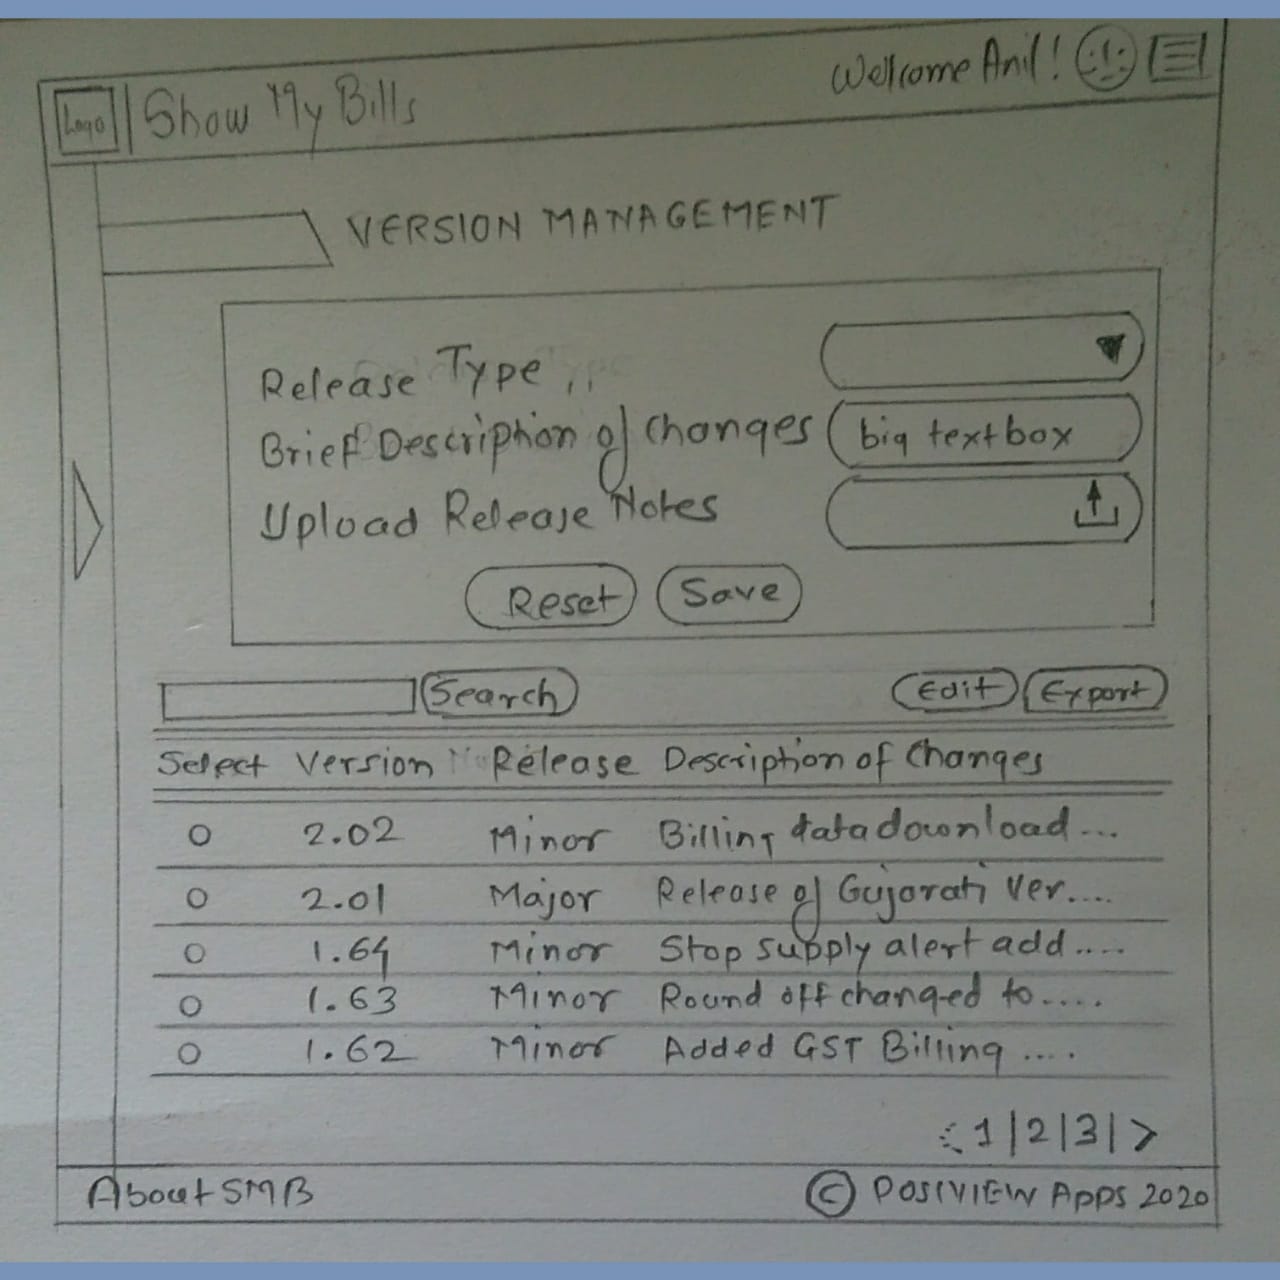 Logo | Show My Bills Welcome Anil!
VERSION MANAGEMENT
Release Type
Brief Description of Changes big textbox
Upload Release Notes
Reset Save
Search Edit Export
Select Version Release Description of Changes
2.02 Minor Billing data download...
2.01 Major Release of Gujarati Ver....
1.64 Minor Stop supply alert add....
1.63 Minor Round off changed to.....
1.62 Minor Added GST Billing ....
< 1 | 2 | 3 | >
About SMB © POSIVIEW APPS 2020